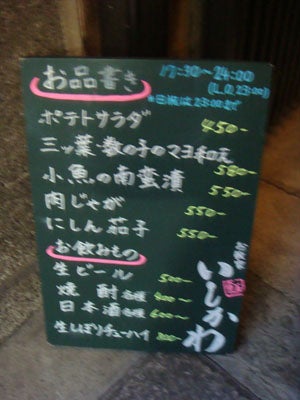 お品書き
17:30〜24:00
(L.O.23:00)
*日祝は23:00まで
ポテトサラダ 450-
三ッ葉・数の子のマヨ和え 580-
小魚の南蛮漬 550-
肉じゃが 550-
にしん茄子 550-
お飲みもの
生ビール 500-
焼酎各種 400〜
日本酒各種 600〜
生しぼりチューハイ
いしかわ